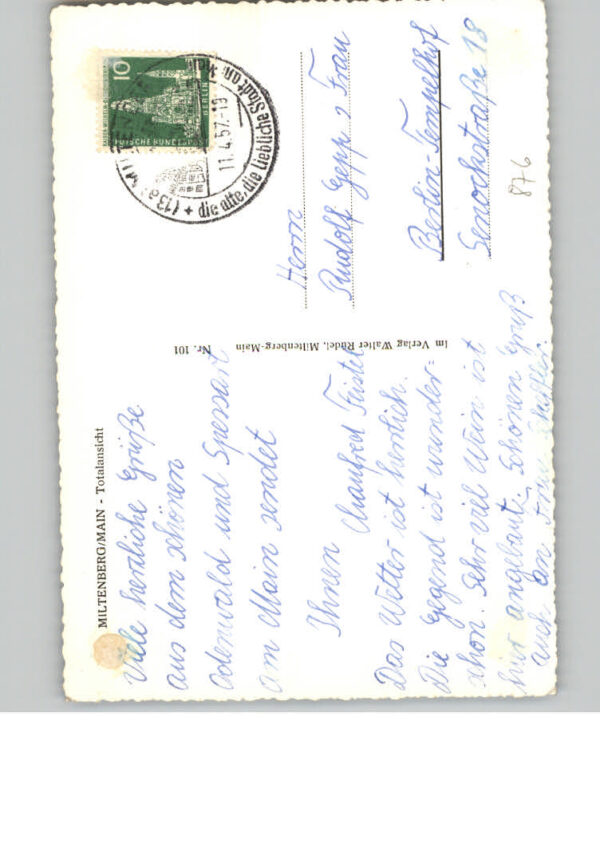 MILTENBERG/MAIN - Totalansicht
Viele herzliche Grüße
aus dem schönen
Odenwald und Spessart
am Main sendet
Ihnen Manfred Feistel
Das Wetter ist herrlich.
Die Gegend ist wunder=
schön. Sehr viel Wein ist
hier angebaut. Schönen Gruß
auch an Frau
Nr. 101
Im Verlag Walter Rüdel, Miltenberg-Main
10
BERLIN
DEUTSCHE BUNDESPOST
(13a)
11.4.57.-19
die alte, die liebliche Stadt am Main
Herrn
Rudolf Gepp u Frau
Berlin-Tempelhof
876